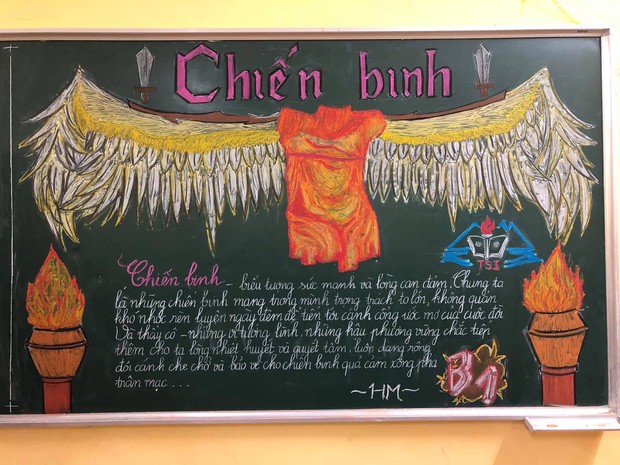 Chiến binh
Chiến binh - biểu tượng sức mạnh và lòng can đảm. Chúng ta
là những chiến binh mang trong mình trọng trách to lớn, không quản
khó nhọc rèn luyện ngày đêm để tiến tới cánh cổng ước mơ của cuộc đời
Và thầy cô - những vị tướng lĩnh, những hậu phương vững chắc tiếp
thêm cho ta lòng nhiệt huyết và quyết tâm, luôn dang rộng
đôi cánh che chở và bảo vệ cho chiến binh quả cảm xông pha
trận mạc ...
~HM~
TSI
B1